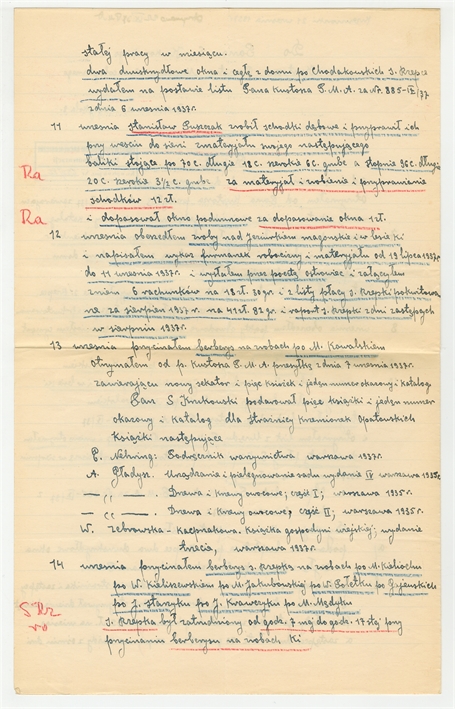 stałej pracy w miesiącu.
dwa dwuskrzydłowe okna i cegłę z domu po Chodakowskich J. Krzepce
wydałem na podstawie listu Pana Kustosza P.M.A. za Nr. 885-IV/37
z dnia 6 września 1937r.
11 września Stanisław zrobił schodki dębowe i przyprawił ich
przy weściu do sieni z materyału swojego następującego
baliki stojące po 70 c. długie 18 c. szerokie 6 c. grube a stopnie 96 c. długie
Ra
20 c. szerokie 3½ c. grube za materyał i robienie i przyprawianie
schodków 12 zł.
Ra
i dopasował okno podwójne za dopasowanie okna 1 zł.
12 września obszedłem zroby nad i w lesie
i napisałem wykaz furmanek robocizny i materyałów od 19 lipca 1937r.
do 11 września 1937r. i wysłałem przez pocztę ostrowiec i załączyłem
6 rachunków na 18 zł. 30 gr. i 2 listy płacy J. Krzepki pokwitowane
za sierpień 1937r. na 41 zł. 82 gr. i raport J. Krzepki z dni zastępczych
w sierpniu 1937r.
13 września przycinałem berberys na zrobach po M. Kowalskiem
otrzymałem od p. Kustosza P.M.A. przesyłkę z dnia 7 września 1937r.
zawierającą nowy sekator i pięć książek i jeden numer okazowy i katalog
Pan S Krukowski podarował pięć książki i jeden numer
okazowy i katalog dla Strażnicy Krzemionek Opatowskich
Książki następujące
E. Nehring: Podręcznik warzywnictwa warszawa 1937r.
A. Gładysz. Urządzanie i pielęgnowanie sadu wydanie IV warszawa 1935r
— (( —. Drzewa i krzewy owocowe; część I; warszawa 1935r.
— (( —. Drzewa i krzewy owocowe, część II; warszawa 1935r.
W. Żebrowska - Kacprzakowa. Książka gospodyni wiejskiej; wydanie
trzecie, warszawa 1937r.
14 września przycinałem berberys J. Krzepka na zrobach po M.
po W. Kieliszewskiem po M. Jakubowskiej po W. po
po J. po J. Krawczyku po M.
S Rz
ro
J. Krzepka był zatrudniony od godz. 7 mej do godz. 17 stej przy
przycinaniu berberysu na zrobach Ki